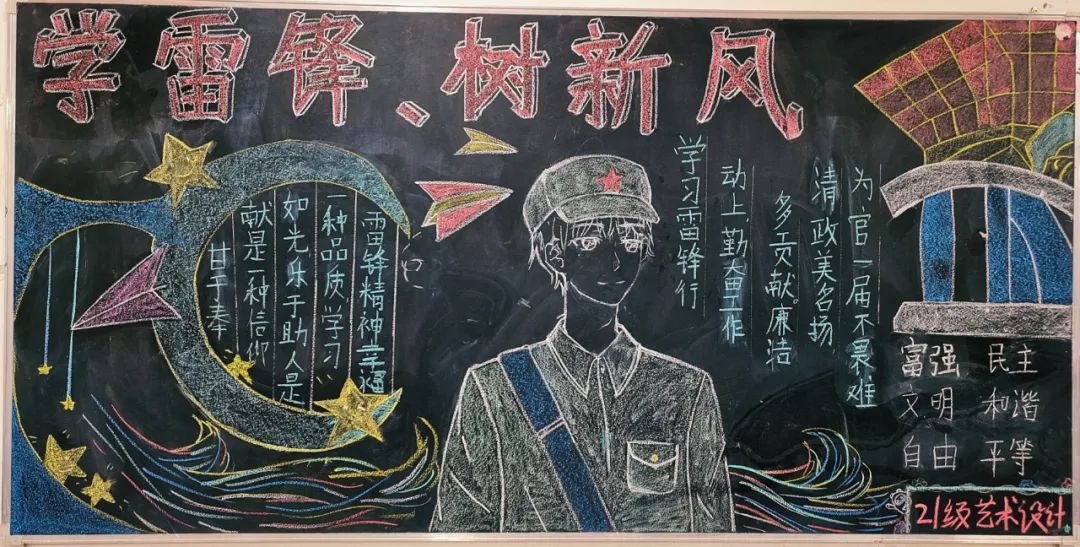 学雷锋、树新风
甘于奉
献是一种信仰
如光乐于助人是
一种品质学习
雷锋精神幸福
学习雷锋行
动上,勤奋工作
多贡献。廉洁
清政美名扬
为官一届不畏难
富强 民主
文明 和谐
自由 平等
21级艺术设计